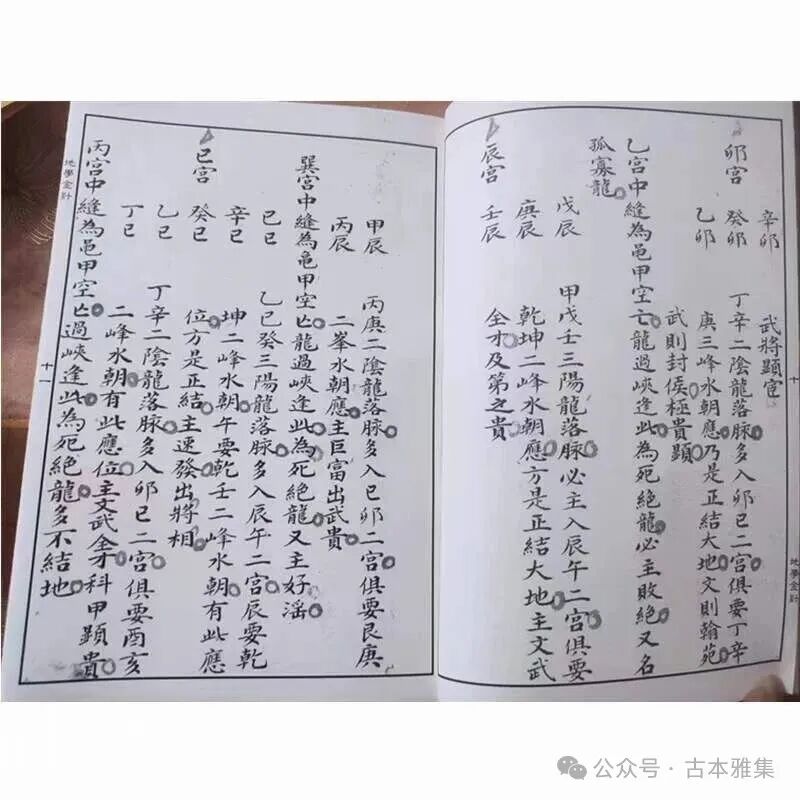 辛卯 武將顯宦
卯宮
癸卯 丁辛二陰龍落脉多入卯巳二宮俱要丁辛
乙卯 庚三峰水朝應乃是正結大地文則翰苑
武則封侯極貴顯
乙宮中縫為黾甲空亡龍過峽逢此為死絕龍必主敗絕又名
孤寡龍
戊辰 甲戊壬三陽龍落脉必主入辰午二宮俱要
辰宮
庚辰 乾坤二峰水朝應方是正結大地主文武
壬辰 全才及第之貴
地學金針
十
甲辰 丙庚二陰龍落脉多入巳卯二宮俱要艮庚
丙辰 二峯水朝應主巨富出武貴
巽宮中縫為黾甲空亡龍過峽逢此為死絕龍又主好淫
己巳 乙巳癸三陽龍落脉多入辰午二宮辰要乾
辛巳 坤二峰水朝午要乾壬二峰水朝有此應
巳宮
癸巳 位方是正結主速發出將相
乙巳 丁辛二陰龍落脉多入卯巳二宮俱要酉亥
丁巳 二峰水朝有此應位主文武全才科甲顯貴
丙宮中縫為黾甲空亡過峽逢此為死絕龍多不結地
地學金針
十一
公众号·古本雅集